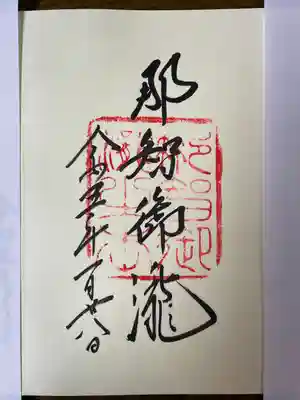 那智御瀧
令和五年一月廿八日